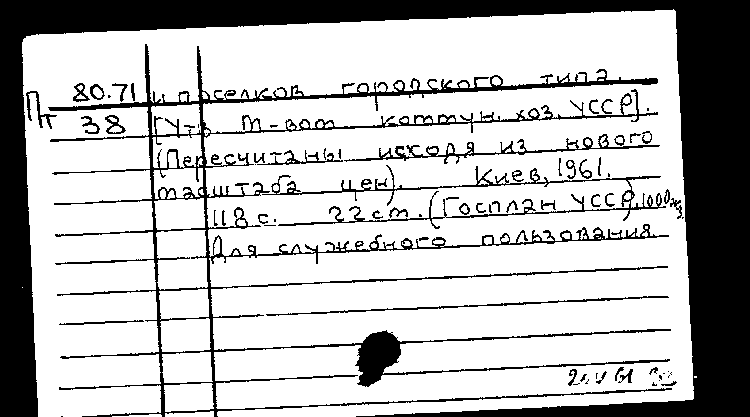 Пт 80.71 и поселков городского типа.
38 [Утв. М-вом коммун. хоз. УССР].
(Пересчитаны исходя из нового
масштаба цен). Киев, 1961.
118 с. 22 см. (Госплан УССР). 1000 экз
Для служебного пользования
20 V 61